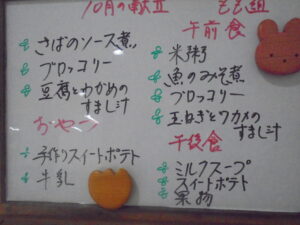 10月の献立
さばのソース煮
ブロッコリー
豆腐とわかめの
すまし汁
おやつ
手作りスイートポテト
牛乳
もも組
午前食
米粥
魚のみそ煮
ブロッコリー
玉ねぎとワカメの
すまし汁
午後食
ミルクスープ
スイートポテト
果物